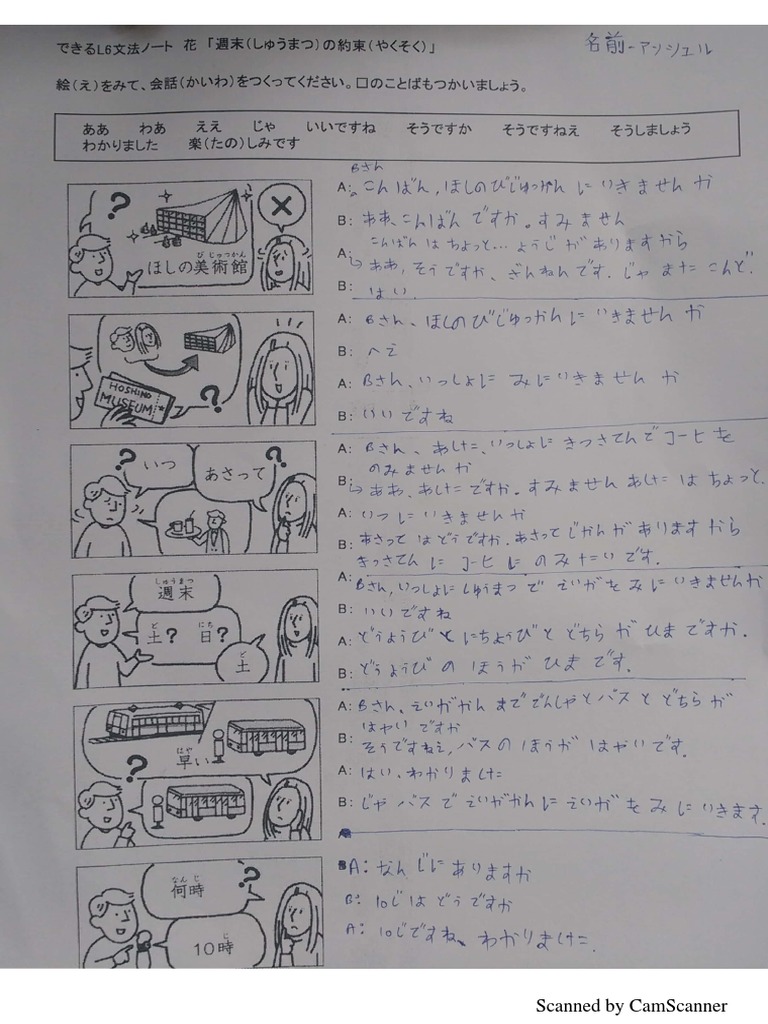 できるL6文法ノート 花 「週末(しゅうまつ)の約束(やくそく)」
名前-アンシュル
絵(え)をみて、会話(かいわ)をつくってください。口のことばもつかいましょう。
ああ わあ ええ じゃ いいですね そうですか そうですねえ そうしましょう
わかりました 楽(たの)しみです
ほしの美術館
びじゅつかん
Bさん
A: こんばん、ほしのびじゅつかんにいきませんか
B: ああ、こんばんですか。すみません
こんばんはちょっと…ようじがありますから
A: ああ、そうですか、ざんねんです。じゃまたこんど.
B: はい.
HOSHINO
MUSEUM
A: Bさん、ほしのびじゅつかんにいきませんか
B: へえ
A: Bさん、いっしょにみにいきませんか
B: いいですね
いつ
あさって
A: Bさん、あした、いっしょにきっさてんでコーヒを
のみませんか
B: ああ、あしたですか。すみませんあしたはちょっと.
A: いつにいきませんか
B: あさってはどうですか.あさってじかんがありますから
きっさてんにコーヒにのみたいです.
しゅうまつ
週末
ど
土?
にち
日?
ど
土
A: Bさん,いっしょにしゅうまつでえいがをみにいきませんか
B: いいですね
A: どうようびとにちようびとどちらがひまですか.
B: どうようびのほうがひまです.
はや
早い
A: Bさん、えいがかんまででんしゃとバスとどちらが
はやいですか
B: そうですねえ,バスのほうがはやいです.
A: はい、わかりました
B: じゃバスでえいがかんにえいがをみにいきます.
なんじ
何時
10時
じ
A: なんじにありますか
B: 10じはどうですか
A: 10じですね、わかりました.
Scanned by CamScanner